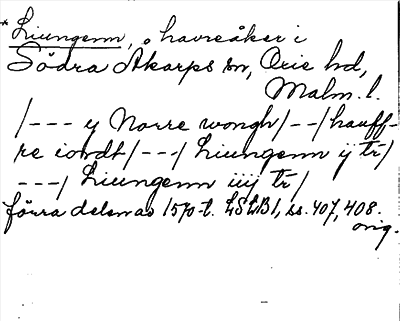 * Liungenn, åhavreåker i
Södra Åkarps sn, Oxie hd,
Malm. l.
/--- y Norre wongh/--/hauff-
re iordt/---/ Liungenn ÿ tr/
---/ Liungenn iiij tr/
förra delen av 1570-t. LSLB1, ss. 407, 408.
orig.